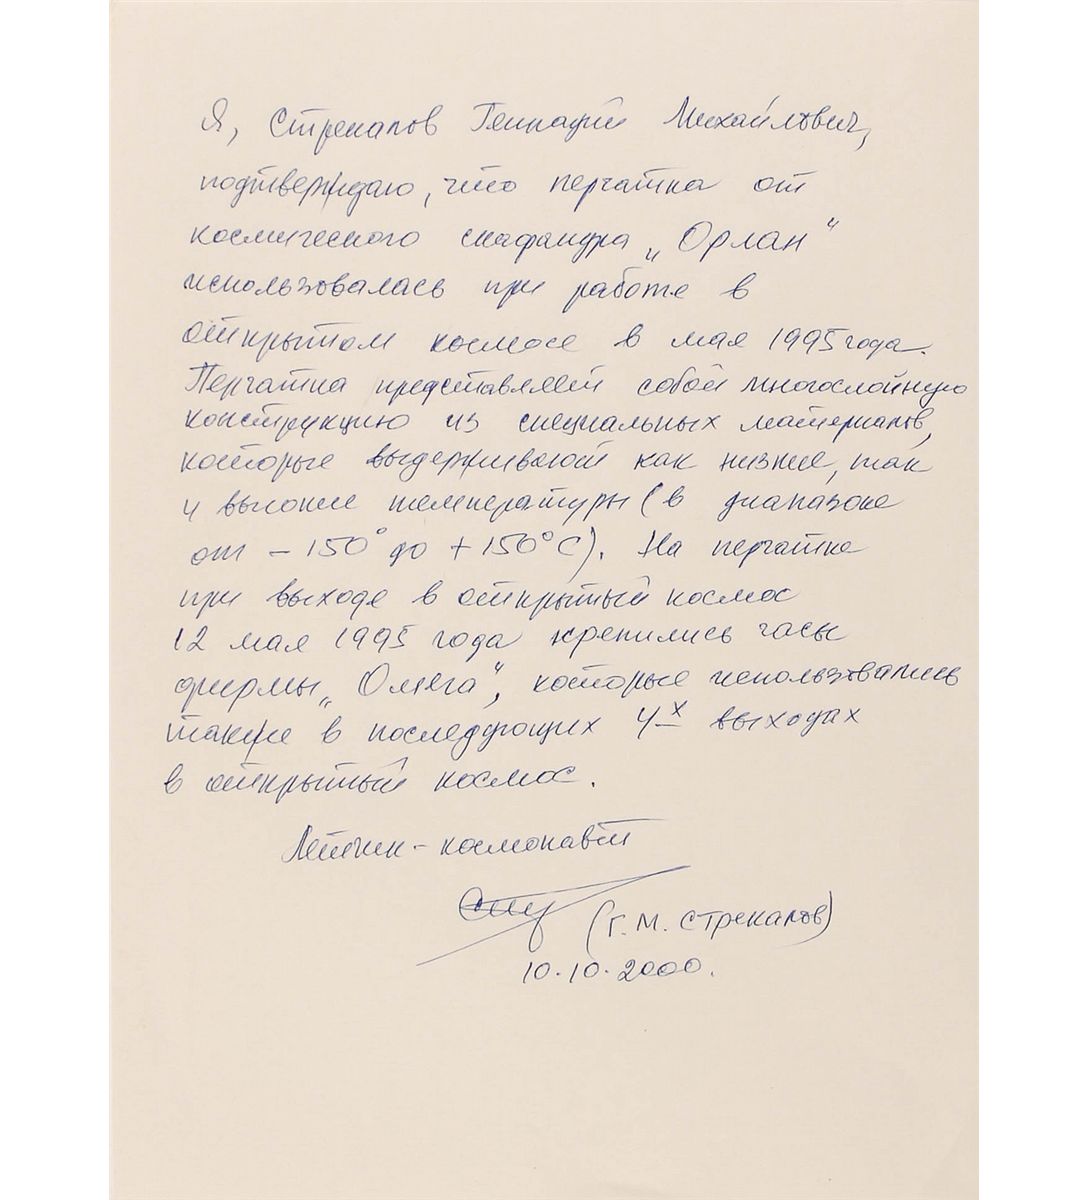 Я, Стрекалов Геннадий Михайлович,
подтверждаю, что перчатка от
космического скафандра „Орлан“
использовалась при работе в
открытом космосе в мая 1995 года.
Перчатка представляет собой многослойную
конструкцию из специальных материалов,
которые выдерживают как низкие, так
и высокие температуры (в диапазоне
от -150° до +150°С). На перчатке
при выходе в открытый космос
12 мая 1995 года крепились часы
фирмы „Омега“, которые использовались
также в последующих 4х выходах
в открытый космос.
Летчик-космонавт
(Г.М. Стрекалов)
10.10.2000.